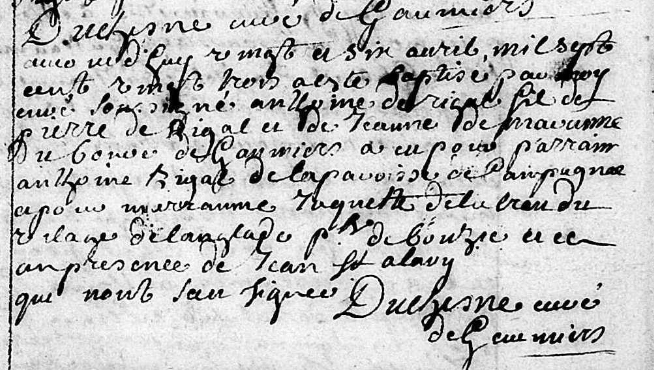 Duchesne curé de Gaumiers
aujourd'huy vingt et six avril mil sept
cent vingt trois a este baptisé par moy
curé soussigné anthoine de rigal fil de
pierre de Rigal et de Jeanne de
du bour de Gaumiers a eu pour parrain
anthoine Rigal de la paroisse de Campagnac
a pour marraine huguette de
vilage de langlade p.sse de bouzic et ce
an presence de Jean
qui n'ont seu signer Duchesne curé
de Gaumiers